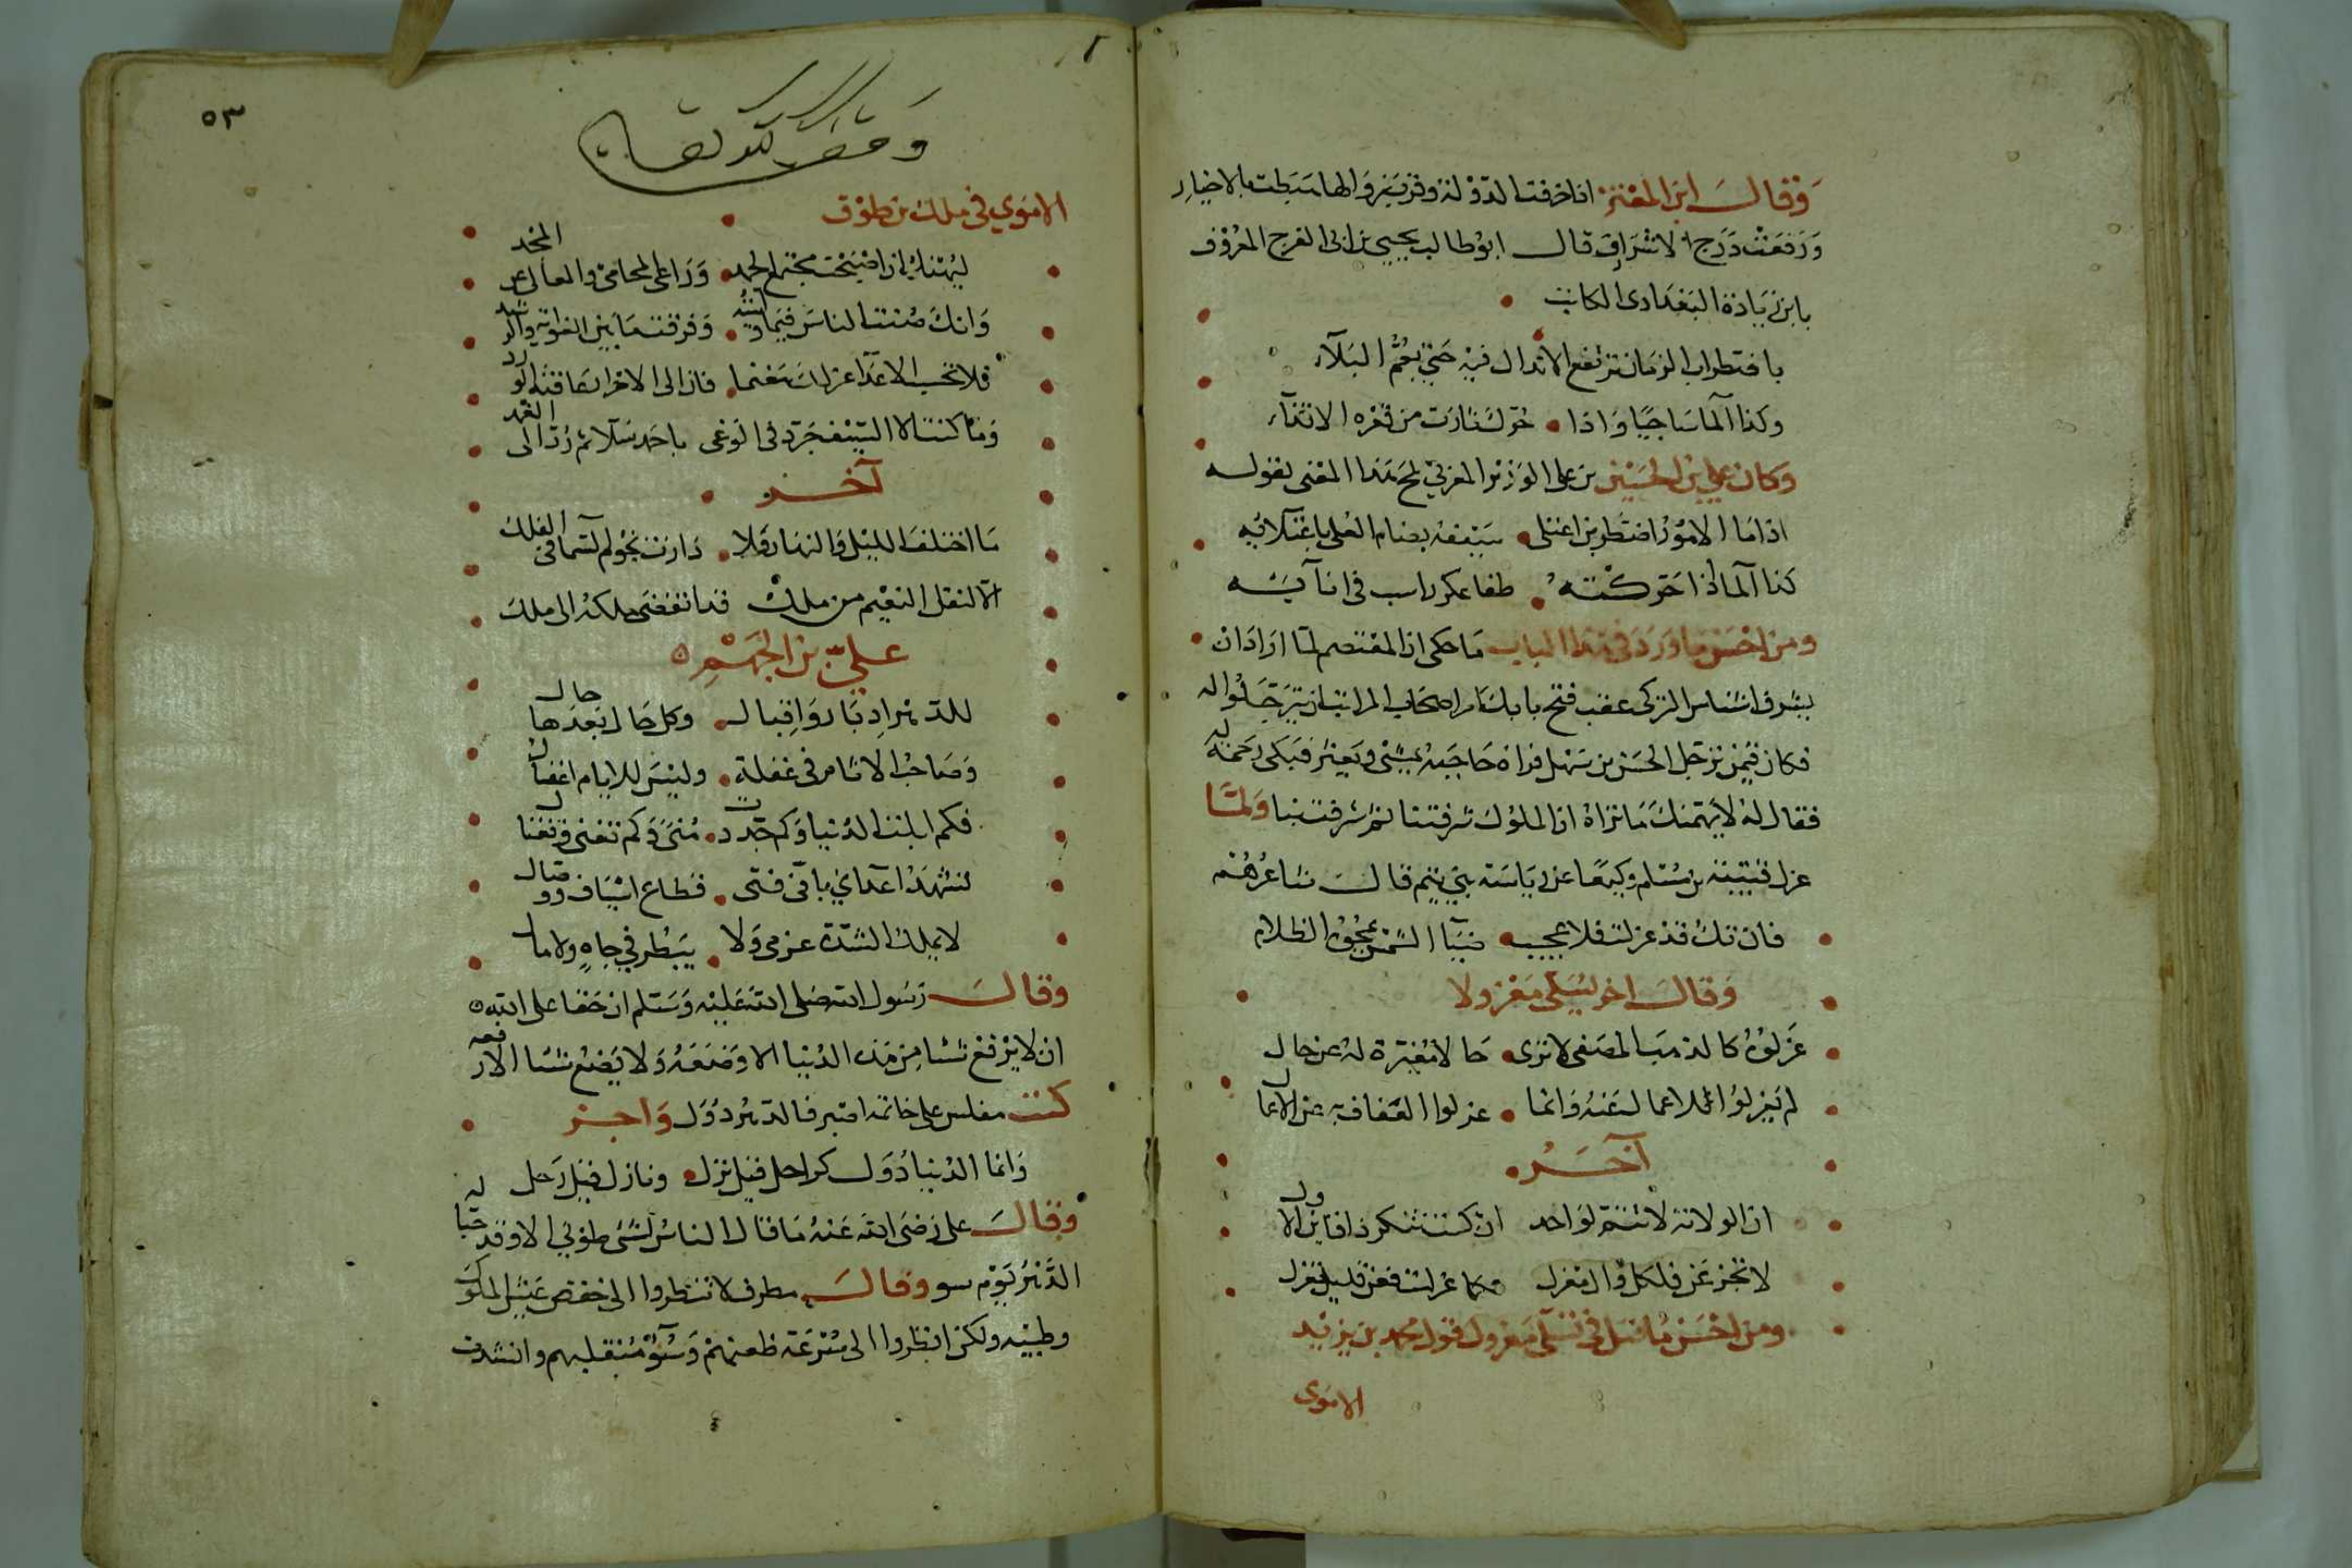 وقال ابن المعتز اذا خرفت الدولة وقرب زوالها هبطت بالاخيار
ورفعت درج الاشراف قال ابو طالب يحيى بن ابى الفرج المعروف
بابن زبادة البغدادى الكاتب
باضطراب الزمان ترتفع الانذال فيه حتى يعم البلآء
وكذا المآ ساجيا واذا حرك ثارت من قعره الاقذآء
وكان على بن الحسين بن على الوزير المغربى لمح هذا المعنى بقوله
اذا ما الامور اضطربن اعتلى سفيه يضام العلى باعتلائه
كذا المآ اذا حركته طفا عكر راسب فى انآيه
ومن احسن ما ورد فى هذا الباب ما حكى ان المعتصم لما اراد ان
يشرف اشناس التركى عقب فتح بابك امر اصحاب المراتب ان يترجلوا له
فكان فيمن ترجل الحسن بن سهل فراه حاجبه يمشى ويعثر فبكى رحمة له
فقال له لا يهمنك ما تراه ان الملوك شرفتنا ثم شرفت بنا ولما
عزل قتيبة بن مسلم وكيعا عن رياسة بنى تميم قال شاعرهم
فان تك قد عزلت فلا عجيب ضيآ الشمس يمحوه الظلام
وقال اخر يسلى معزولا
عزلوه كالذهب المصفى لا ترى حالا مغيرة له عن حال
لم يعزلوا الاعمال عنه وانما عزلوا العفاف به عن الاعمال
آخر
ان الولاية لا تتم لواحد ان كنت تنكر ذا فاين الاول
لا تجزعن فلكل وال معزل وكما عزلت فعن قليل تعزل
ومن احسن ما قيل فى تسلى معزول قول محمد بن يزيد
الاموى
٥٣
وقف لله تعالى
الاموي فى ملك بن طوق
ليهنك ان اصبحت مجتمع الحمد وراعى المحامى والمعالى عن المجد
وانك صنت الناس فيما وليته وفرقت ما بين الغواية والرشد
فلا تحسب الاعدا عزلك مغنما فان الى الاخرى عاقبة الورد
وما كنت الا السيف جرد فى الوغى باحمد سلا ثم رد الى الغمد
آخر
ما اختلف الليل والنهار ولا دارت نجوم السما فى الفلك
الا لنقل النعيم من ملك قد انقضى ملكه الى ملك
على بن الجهم
للدهر ادبار واقبال وكل حال بعدها حال
وصاحب الايام فى غفلة وليس للايام اغفال
فكم ابلت الدنيا وكم جددت منى وكم تفنى وتغتال
تشهد اعدآي بانى فتى قطاع اسياف ووصال
لا يملك الشدة عزمى ولا يبطرنى جاه ولا مال
وقال رسول الله صلى الله عليه وسلم ان حقا على الله
ان لا يرفع شيا من هذه الدنيا الا وضعه ولا يضع شيا الا رفعه
كتب مفلس على خاتمه اصبر فالدهر دول واخر
وانما الدنيا دول كراحل قيل نزل ونازل قيل رحل
وقال على رضى الله عنه ما قال الناس لشى طوبى الا وقد خبا له
الدهر يوم سو وقال مطرف لا تنظروا الى خفض عيش الملوك
وطيبه ولكن انظروا الى سرعة ظعنهم وسوء منقلبهم وانشدت